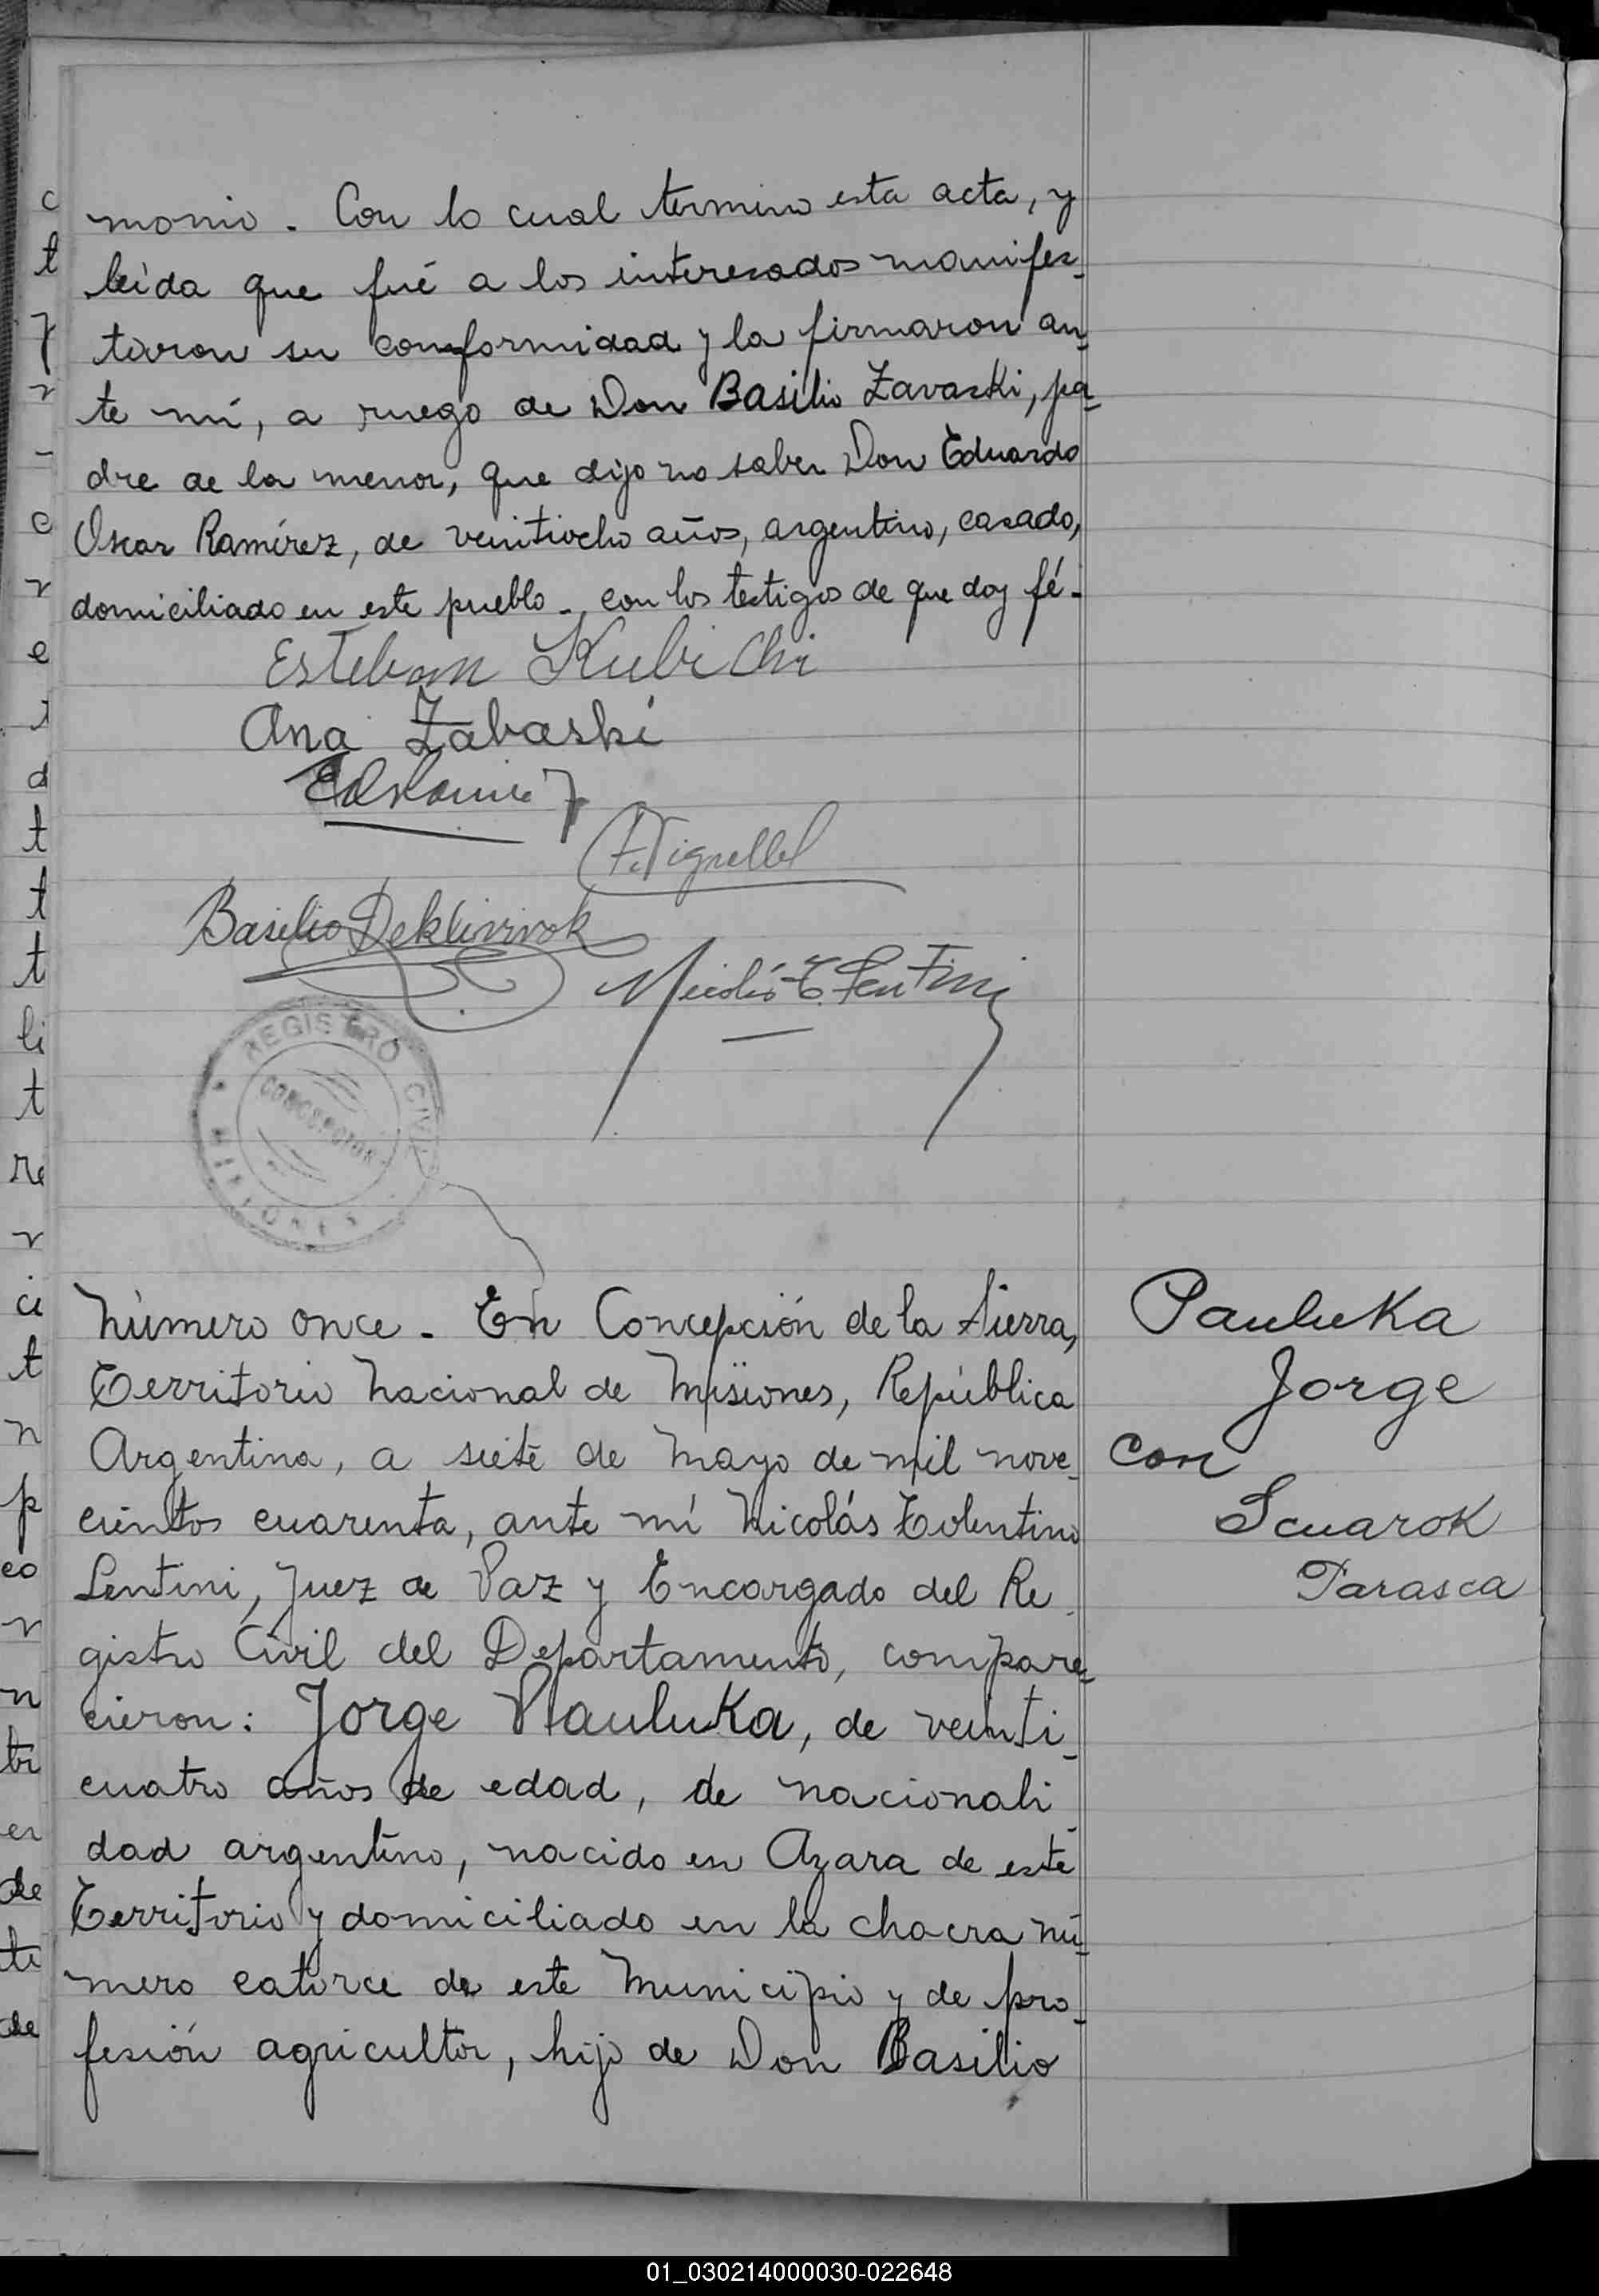 monio. Con lo cual termino esta acta, y
leída que fué a los interesados manifes-
taron su conformidad y la firmaron an-
te mí, a ruego de Don Basilio Zavaski, pa-
dre de la menor, que dijo no saber Don Eduardo
Oscar Ramírez, de veintiocho años, argentino, casado,
domiciliado en este pueblo. con los testigos de que doy fé.
Esteban Kubichi
Ana Zabaski
Basilio
REGISTRO CIVIL
CONCEPCION
MISIONES
Número once. En Concepción de la Sierra,
Territorio Nacional de Misiones, República
Argentina, a siete de Mayo de mil nove-
cientos cuarenta, ante mí Nicolás Tolentino
Lentini, Juez de Paz y Encargado del Re-
gistro Civil del Departamento, compare-
cieron: Jorge Pauluka, de veinti-
cuatro años de edad, de nacionali-
dad argentino, nacido en Azara de este
Territorio y domiciliado en la chacra nú-
mero catorce de este Municipio y de pro-
fesión agricultor, hijo de Don Basilio
Pauluka
Jorge
con
Scuarok
Parasca
01_030214000030-022648